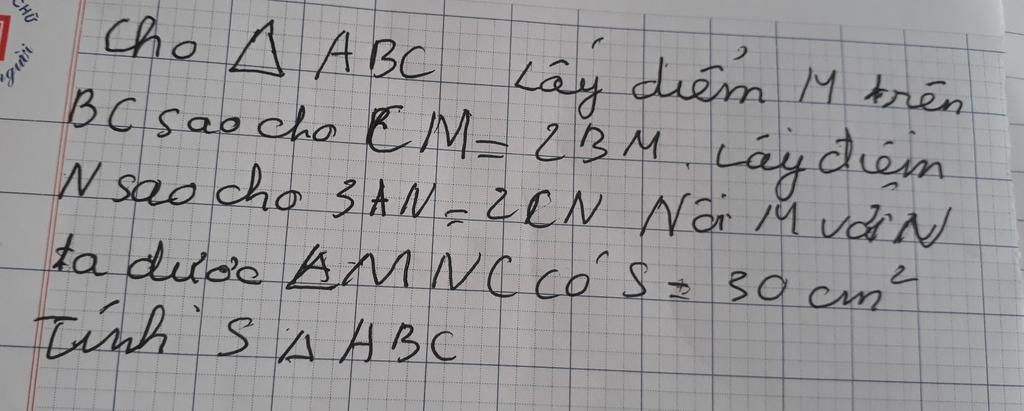 CHỮ
Cho Δ ABC Lấy điểm M trên
BC sao cho CM = 2BM. Lấy điểm
N sao cho 3AN = 2CN Nối M với N
ta được Δ MNC có S = 30 cm²
Tính S Δ ABC